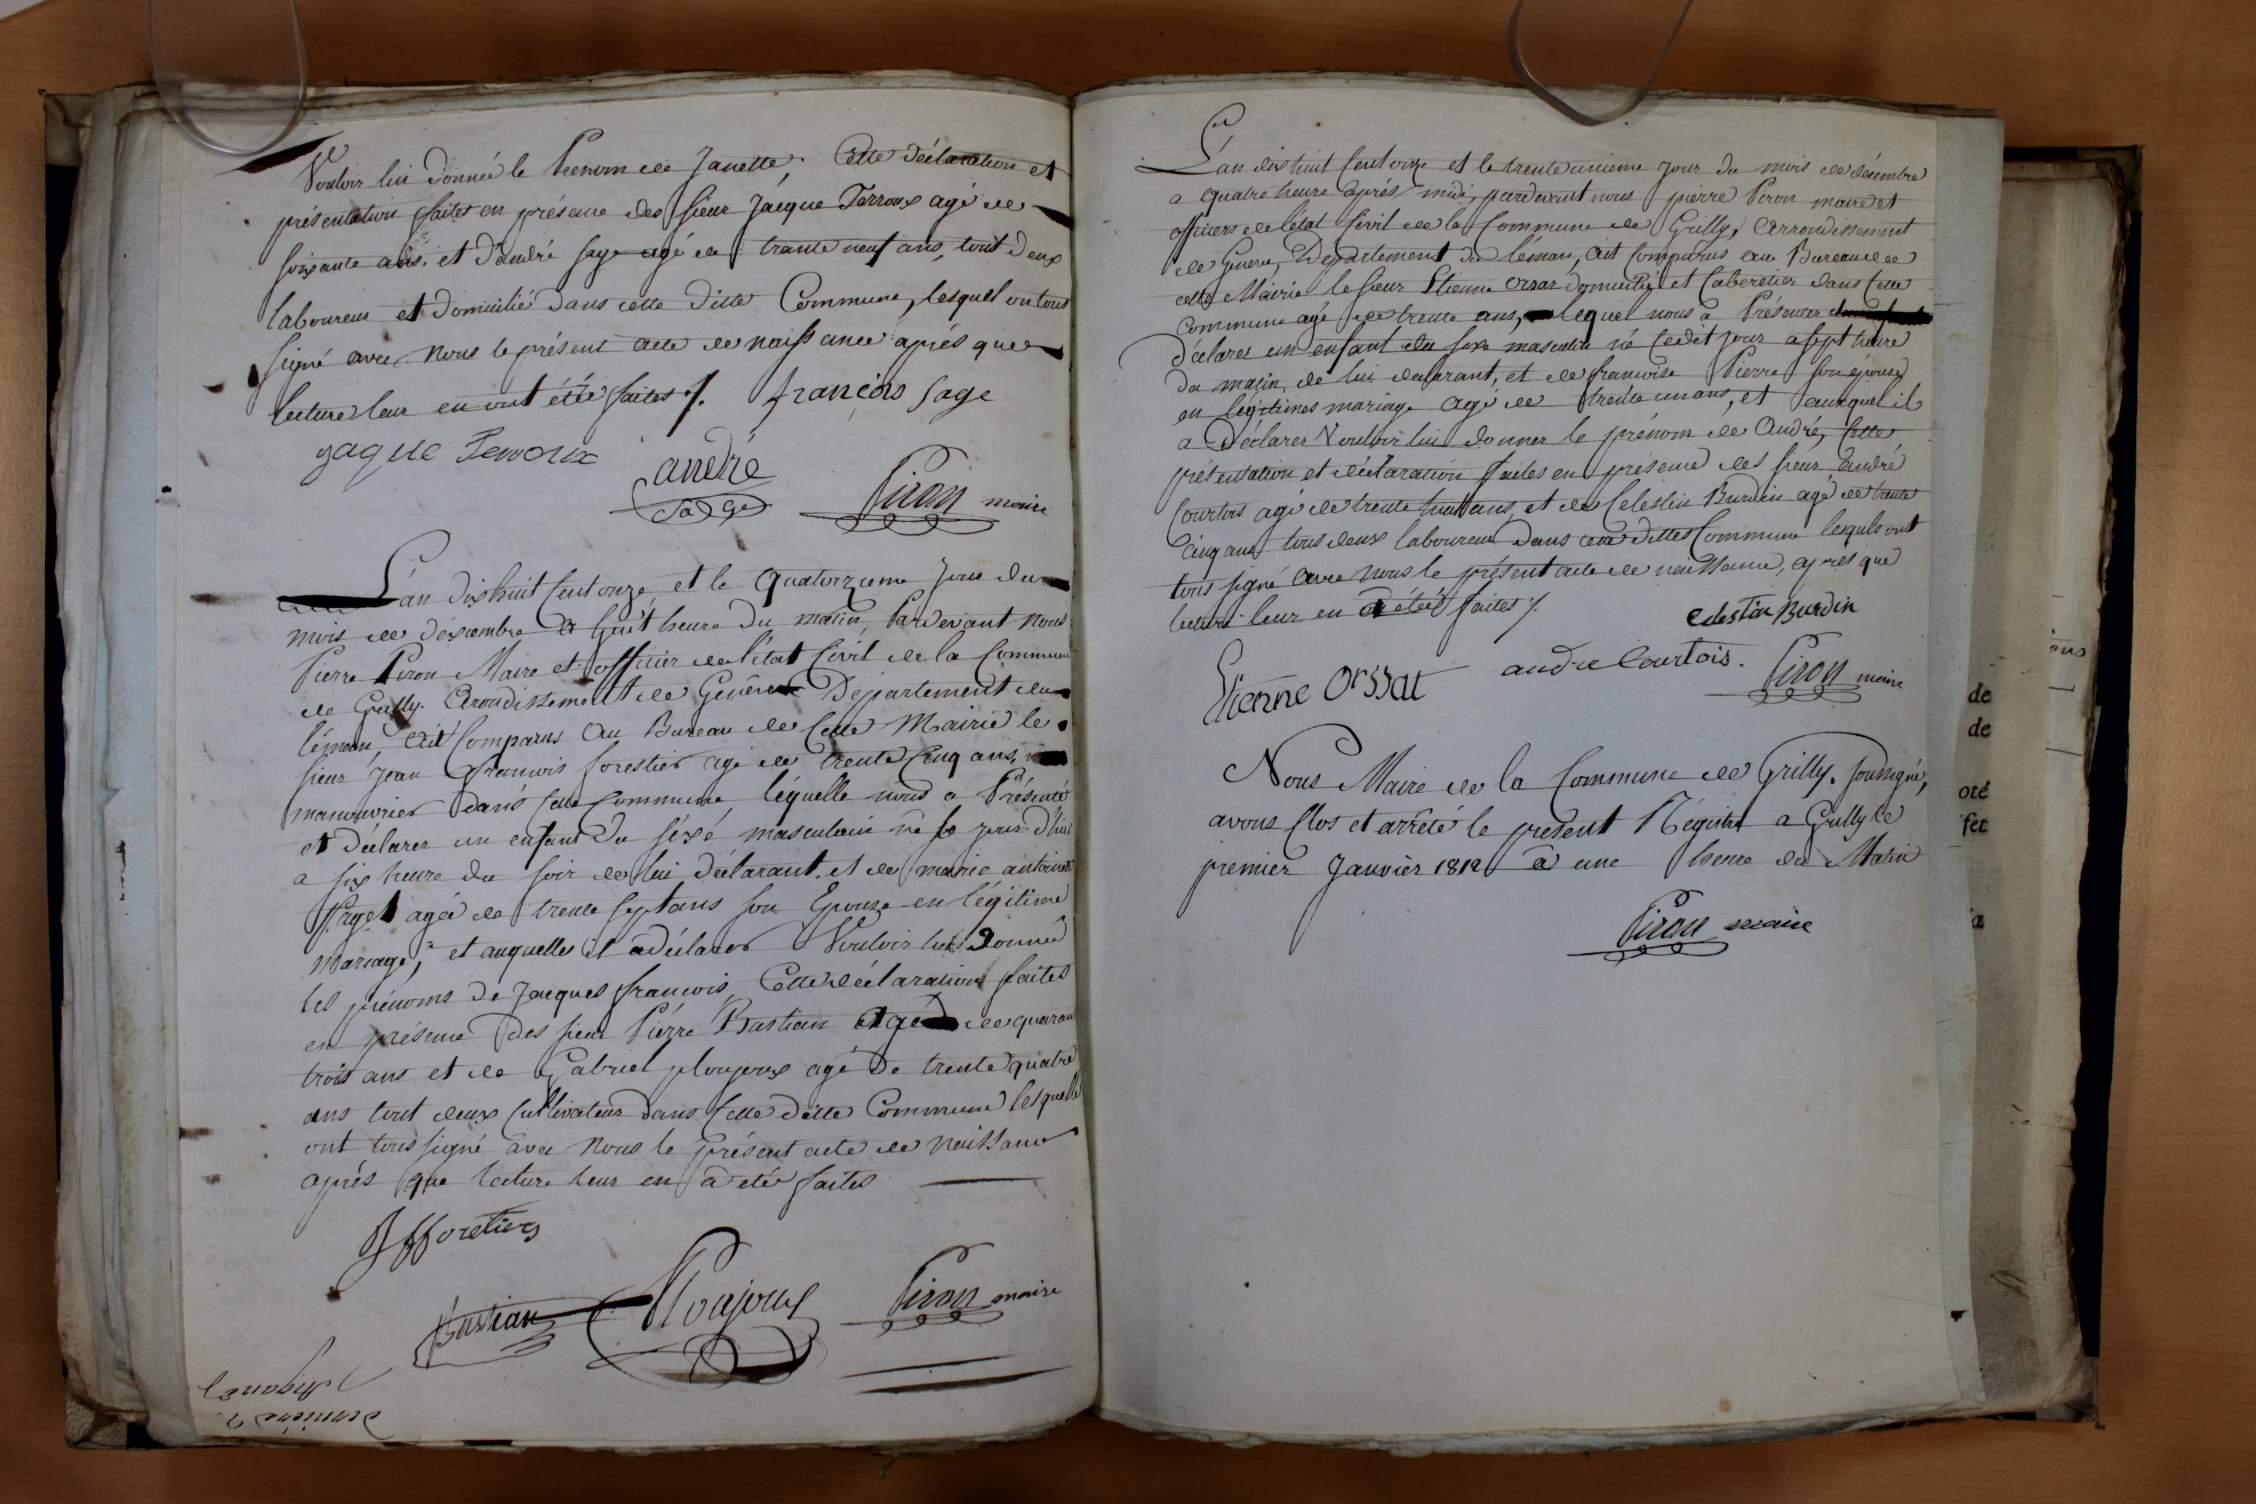 Vouloir lui donnée le Prenom de Janette, Cette déclaration et
présentation faites en présence des sieur Jacque Terroux agé de
soixante ans. et d'andré sage agé de trante neuf ans, tout deux
laboureur et domicilié dans cette ditte Commune, lesquel on tous
signé avec Nous le présent acte de naissance aprés que
lecture leur en ont étée faites /. françois sage
jaque Terroux
andré
Sage
Piron maire
L'an dix huit cent onze, et le quatorzieme jour du
mois de décembre a huit heure du matin, Pardevant nous
Pierre Piron Maire et officier de l'état Civil de la Commune
de Grilly. Arondissement de Genêve Département du
léman, Ait Comparus Au Bureau de Cette Mairie le
sieur Jean françois forestier agé de trente Cinq ans,
manouvrier dans Cette Commune léquelle nous a Présenté
et déclarer un enfant du séxé masculain né le jour d'hui
a six heure du soir de lui déclarant. et de marie antoinet
agée de trente sept ans son Epouze en légitime
Mariage, et auquelles il a déclarer Vouloir lui Donnée
les prénoms de Jacques françois, Cette déclaration faites
en présence des sieur Piérre Bastian Agé de quaran
trois ans et de Gabriel ploujoux agé De trente quatre
ans tout deux Cultivateur dans Cette ditte Commune lesquelle
ont tous signé avec Nous le présent acte de Naissance
aprés que lecture leur en a été faites
Jfforetier
Bastian
Ploujoux
Piron maire
L'an dix huit Cent onze et le trente unieme jour du mois de décembre
a quatre heure aprés midi, pardevant nous pierre Piron maire et
officiers de l'état Civil de la Commune de Grilly, Arrondissement
de Genêve, Département du léman, Ait Comparus au Bureau de
cette Mairie le sieur Etienne Orsat domicilié et Caberetier dans Cette
Commune agé de trente ans, lequel nous a Présenter
déclarer un enfant du sexe masculin né Cedit jour a sept heure
du matin, de lui déclarant, et de francoise Pierre son épouse
en légitimes mariage agé de trente un ans, et auxquel il
a Déclarer Vouloir lui donner le prénom de André, Cette
présentation et déclaration faites en présence des sieur André
Courtois agé de trente huit ans, et de Celestin Burdin agé de trente
cinq ans tous deux laboureur Dans cette dittes Commune lesquels ont
tous signé avec nous le présent acte de naissance, aprés que
lecture leur en a étée faites /.
Celestin Burdin
Etienne Orssat
andre Courtois.
Piron maire
Nous Maire de la Commune de Grilly. soussigné,
avons Clos et arrêté le present Régistre a Grilly le
premier Janvier 1812 à une heure du Matin
Piron maire